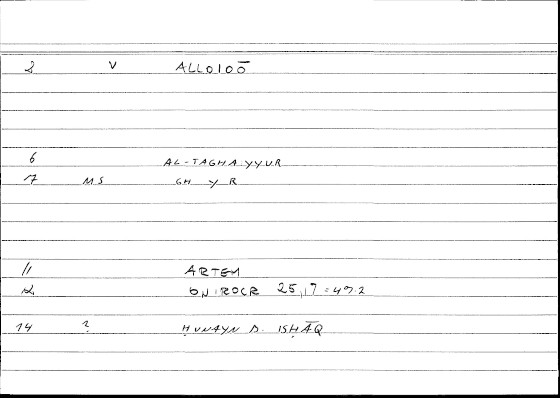 8 V ALLOIOŌ
6 AL-TAGHAYYUR
7 MS GH Y R
11 ARTEM
12 ONIROCR 25,17=47.2
14 ? ḤUNAYN B. ISḤĀQ